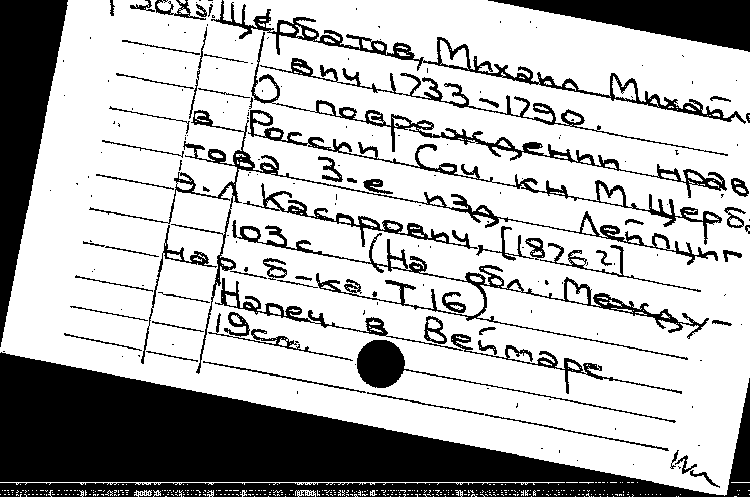 Щербатов, Михаил Михайло
вич, 1733-1790.
О повреждении нрав
в России. Соч. кн. М. Щерба
това. 3-е изд. Лейпциг
Э.Л. Каспрович, [1876?]
103 с. (На обл.: Между-
нар. б-ка. Т. 16).
Напеч. в Веймаре.
19 cm.